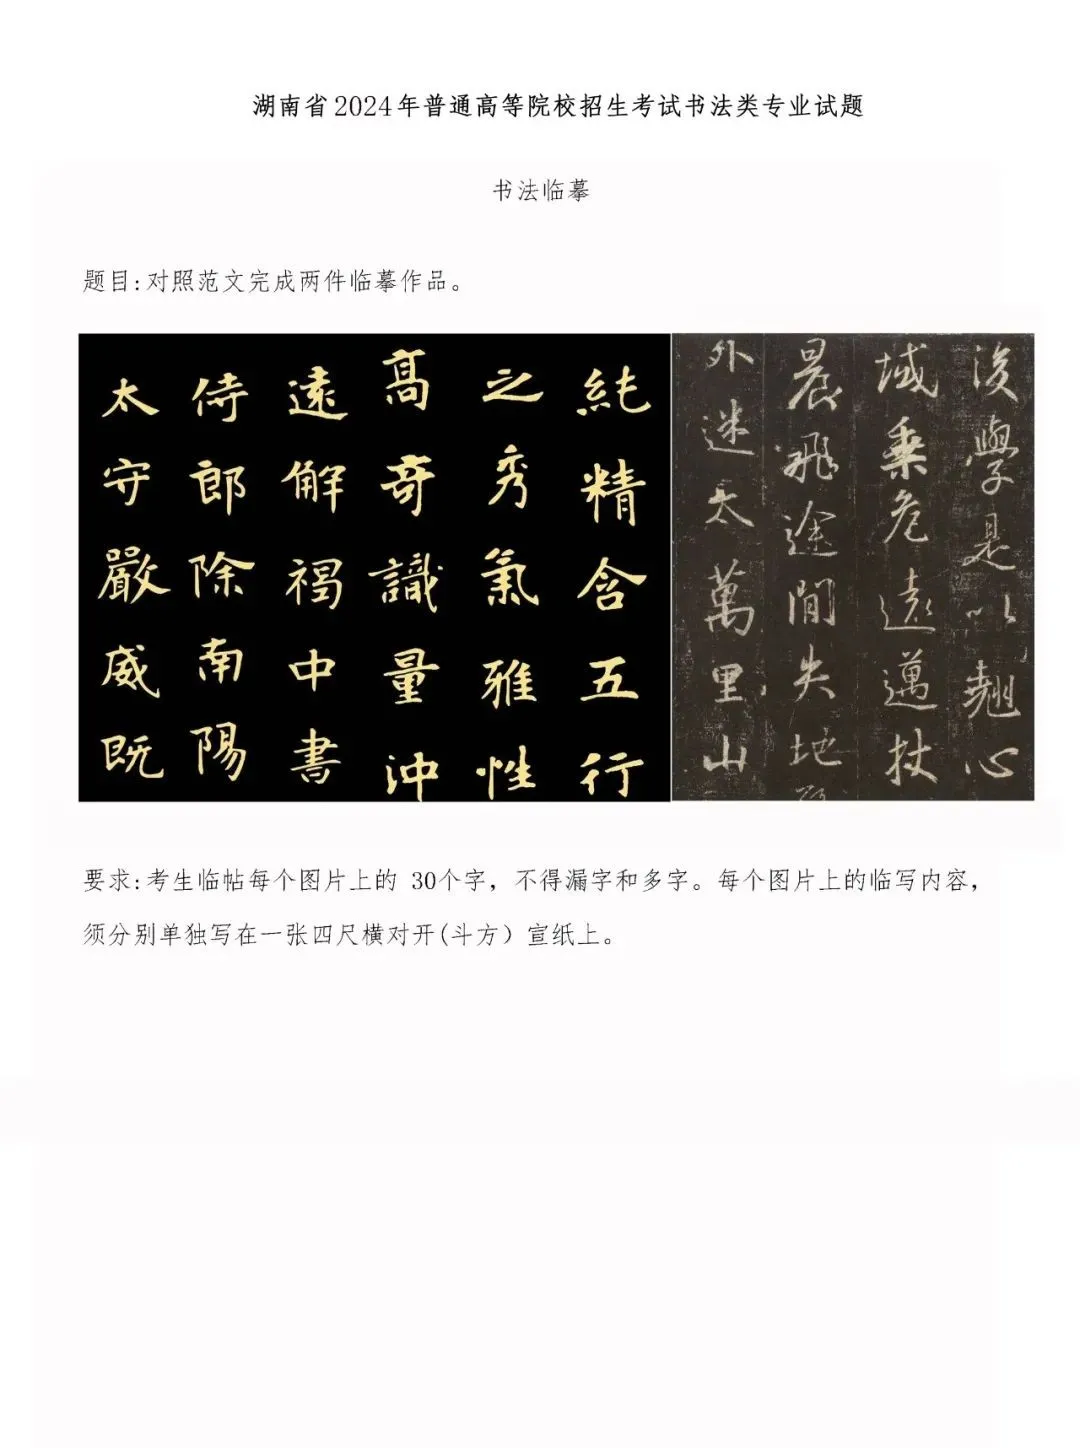 湖南省2024年普通高等院校招生考试书法类专业试题
书法临摹
题目:对照范文完成两件临摹作品。
純精含五行
之秀氣雅性
髙奇識量沖
遠解褐中書
侍郎除南陽
太守嚴威既
後學是以翹心
域乗危遠邁杖
晨飛途間失地
外迷天萬里山
要求:考生临帖每个图片上的 30个字，不得漏字和多字。每个图片上的临写内容，
须分别单独写在一张四尺横对开(斗方）宣纸上。